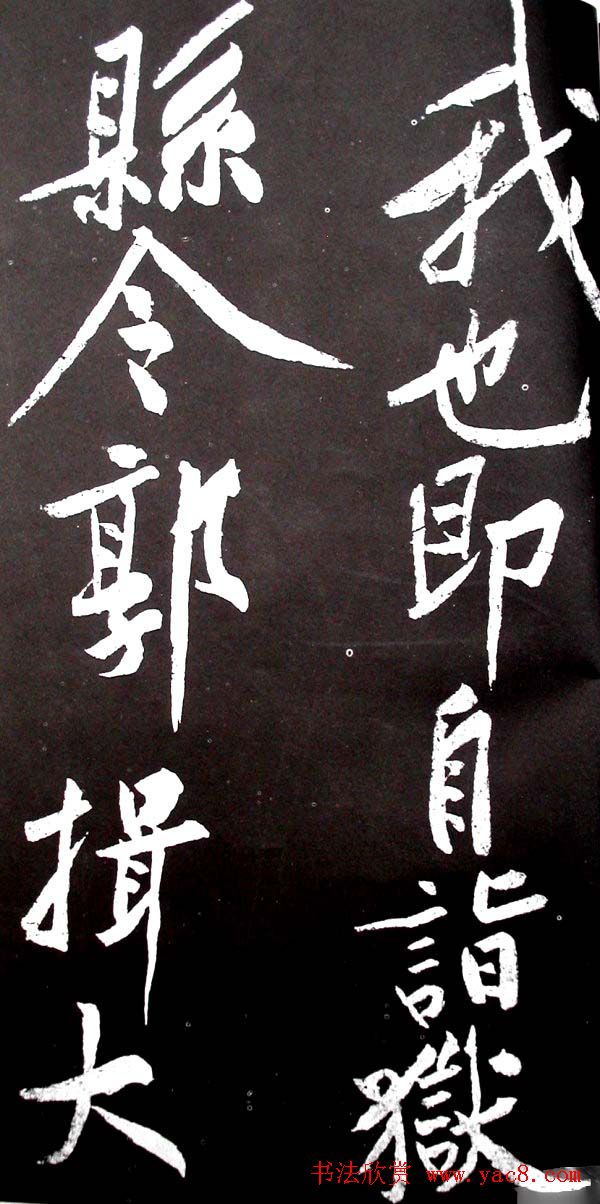 我也即自詣獄
縣令郭揖大
书法欣赏 www.yac8.com